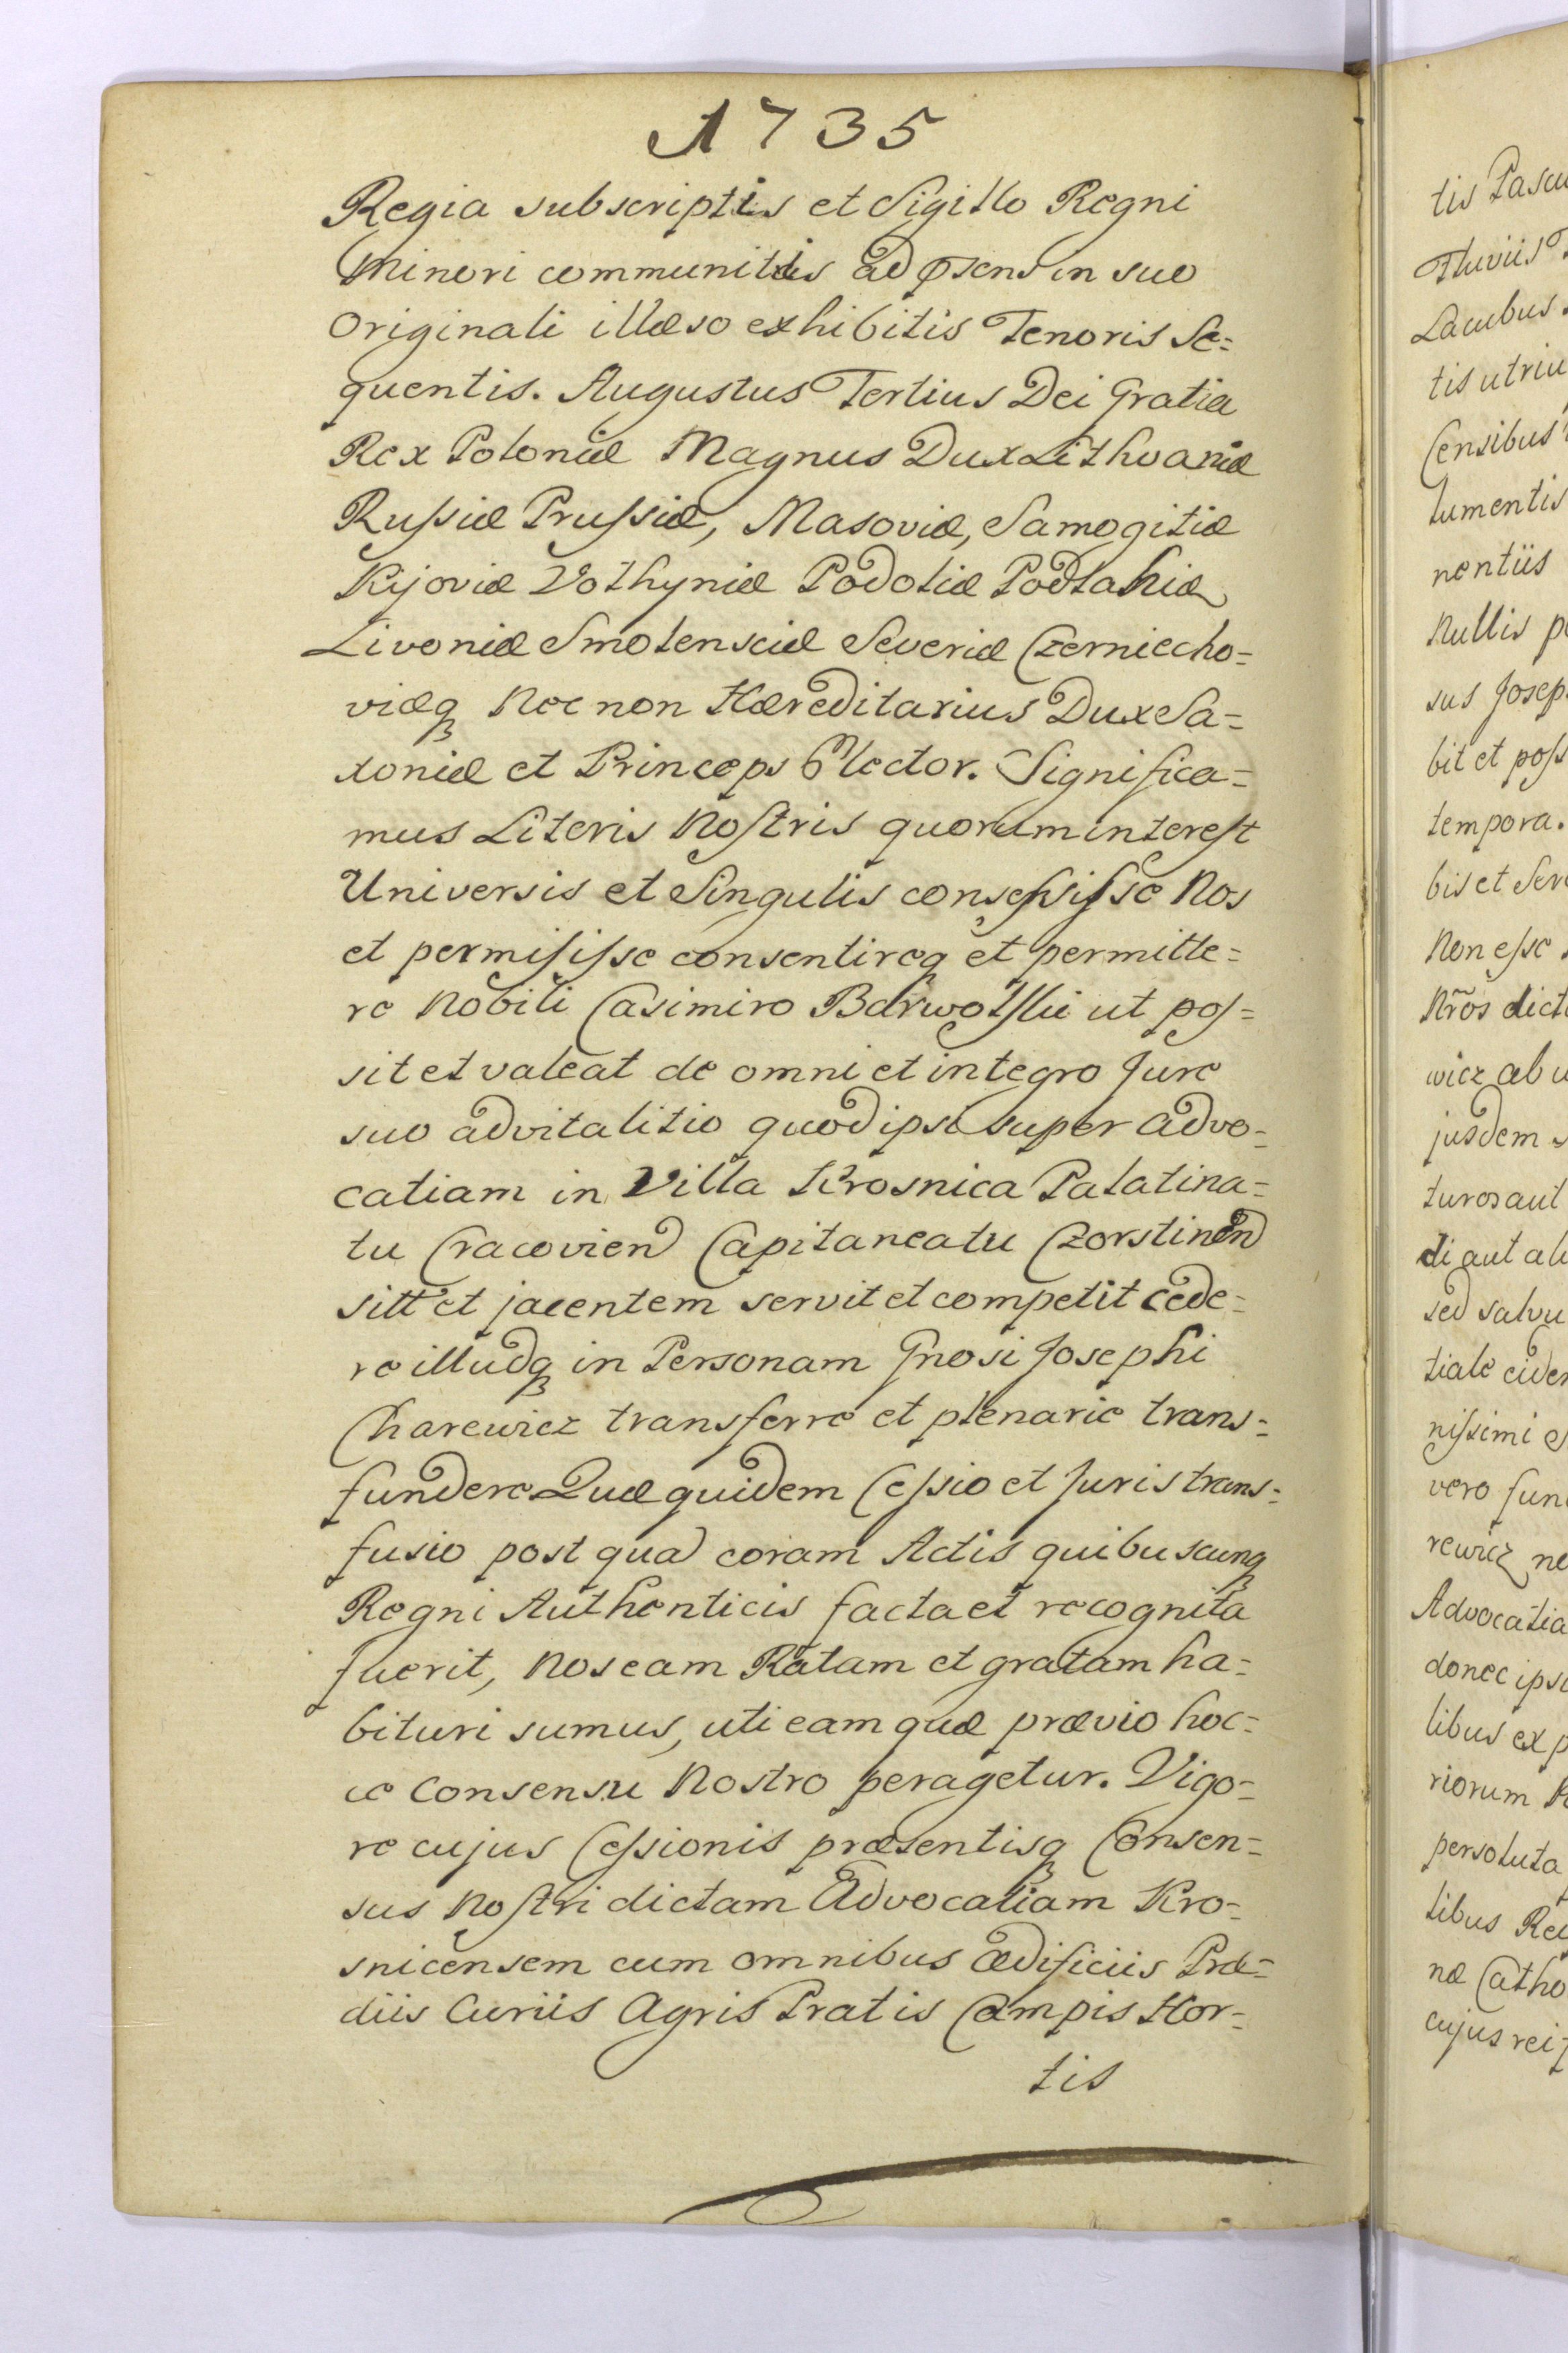 1735
Regia subscriptis et Sigillo Regni
Minori communitis ad psens in suo
Originali illæso exhibitis Tenoris Se=
quentis. Augustus Tertius Dei Gratia
Rex Poloniæ Magnus Dux Lithvaniæ
Rußiæ Prußiæ, Masoviæ, Samogitiæ
Kijoviæ Volhyniæ Podoliæ Podlahiæ
Livoniæ Smolensciæ Severiæ Czerniecho=
viæq Nec non Hæreditarius Dux Sa=
xoniæ et Princeps Elector. Significa=
mus Literis Nostris quorum interest
Universis et Singulis consensisse Nos
et permisisse consentireq et permitte=
re Nobili Casimiro Barwolski ut pos=
sit et valeat de omni et integro Jure
suo advitalitio quod ipsi super Advo=
catiam in Villa Krosnica Palatina=
tu Cracovien Capitaneatu Czorstinen
sitt et jacentem servit et competit cede=
re illudq in Personam Gnosi Josephi
Charewicz transferre et plenarie trans=
fundere Quæ quidem Cessio et Juris trans=
fusio postqua coram Actis quibuscunq
Regni Authenticis facta et recognita
fuerit, Nos eam Ratam et gratam ha=
bituri sumus, uti eam quæ prævio hoc=
ce Consensu Nostro peragetur. Vigo=
re cujus Cessionis præsentisq Consen=
sus Nostri dictam Advocatiam Kro=
snicensem cum omnibus Ædificiis Præ=
diis Curiis Agris Pratis Campis Hor=
tis
tis Pascu
Fluviis
Lacubus
tis utriu
Censibus
lumentis
nentiis
Nullis p
sus Josep
bit et poss
tempora.
bis et Ser
Non esse
Nros dict
wicz ab
jusdem
turos aut
di aut al
sed salvu
tiale eide
nissimi
vero fun
rewicz ne
Advocatia
donec ips
libus ex p
riorum
persoluta
libus Re
næ Catho
cujus rei